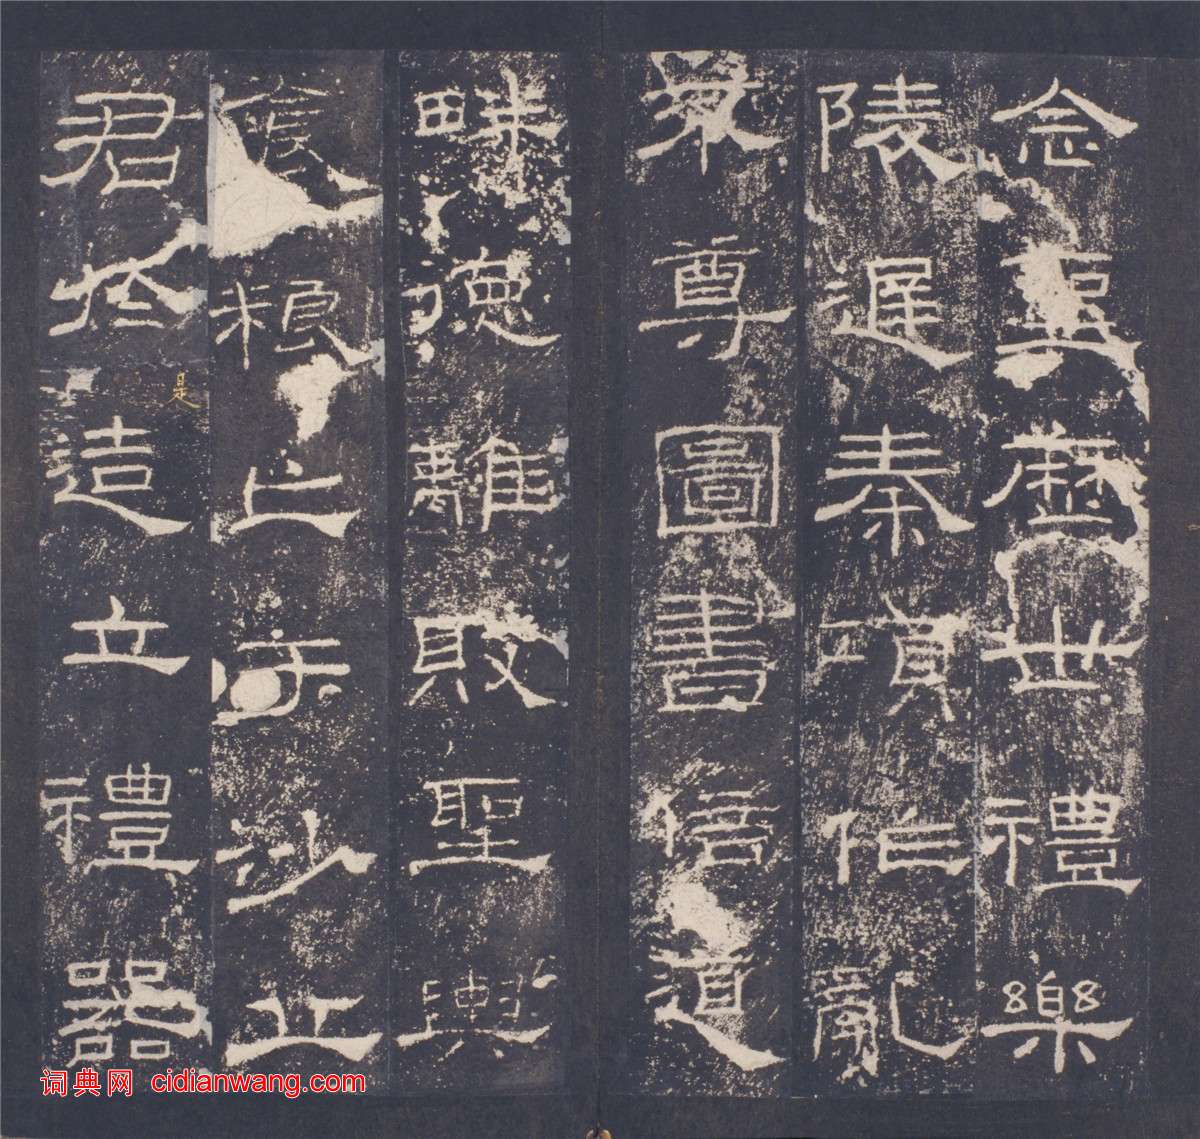 念聖歷世禮樂
陵遲秦項作亂
不尊圖書倍道
畔德離敗聖輿
食糧亡于沙丘
君於是造立禮器
词典网 cidianwang.com